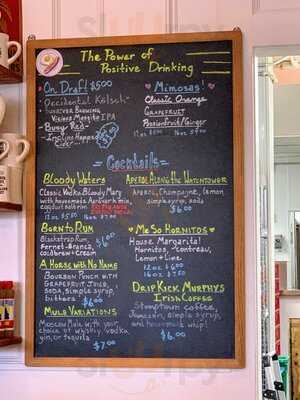 The Power of
Positive Drinking
On Draft! $5.00
Occidental Kölsch
Brewing
Vicious Mosquito IPA
Busey Red
Hopped
Cider
Mimosas!
Classic Orange
Grapefruit
Passionfruit/Ginger
Cocktails
Bloody Waters
Classic Vodka Bloody Mary
with housemade
Aperol Along the Watchtower
Aperol, Champagne, lemon
simple syrup, soda
$6.00
Born to Rum
Blackstrap Rum,
Fernet-Branca,
coldbrew + cream
$6.00
Me So Hornitos
House Margarita!
Hornitos, Contreau,
Lemon + Lime
12oz $6.00
16oz
A Horse with No Name
Bourbon Punch with
Grapefruit Juice,
Soda, Simple syrup,
bitters
$6.00
Drip Kick Murphys
Irish Coffee
Stumptown coffee,
Jameson, simple syrup,
and housemade whip!
$6.00
Mule Variations
Moscow Mule with your
choice of whiskey, vodka
gin, or tequila
$7.00